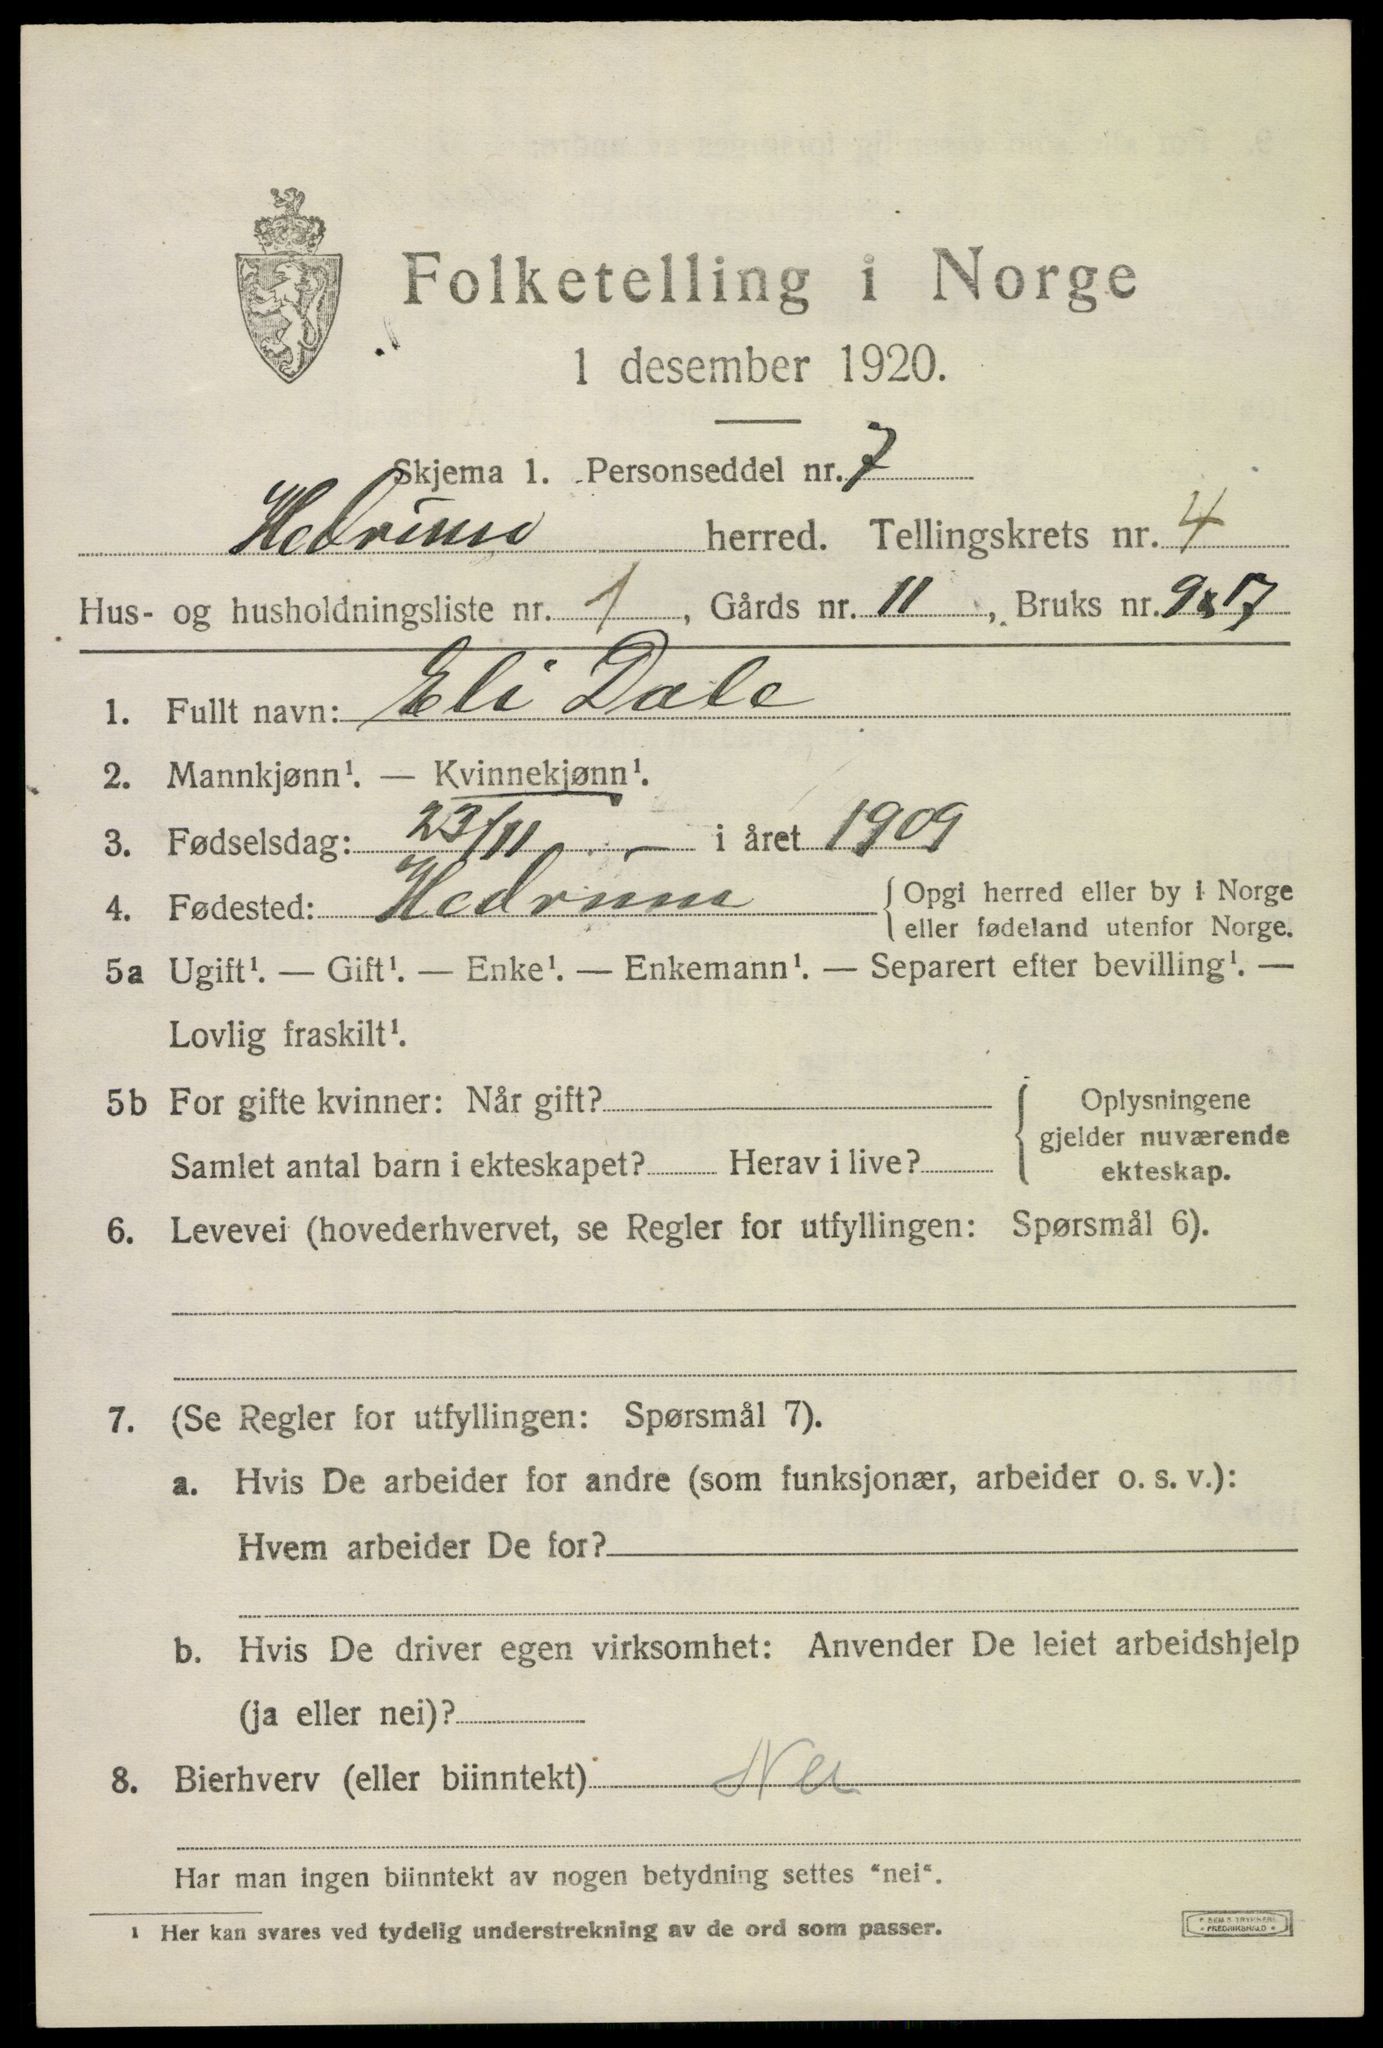 Folketelling i Norge
1 desember 1920.
Skjema 1. Personseddel nr. 7
Hedrum herred. Tellingskrets nr. 4
Hus- og husholdningsliste nr. 1, Gårds nr. 11, Bruks nr. 9&17
1. Fullt navn: Eli Dale
2. Mannkjønn¹. — Kvinnekjønn¹.
3. Fødselsdag: 23/11 — i året 1909
4. Fødested: Hedrum { Opgi herred eller by i Norge
eller fødeland utenfor Norge.
5a Ugift¹. — Gift¹. — Enke¹. — Enkemann¹. — Separert efter bevilling¹. —
Lovlig fraskilt¹.
5b For gifte kvinner: Når gift? { Oplysningene
gjelder nuværende
Samlet antal barn i ekteskapet? Herav i live?
ekteskap.
6. Levevei (hovederhvervet, se Regler for utfyllingen: Spørsmål 6).
7. (Se Regler for utfyllingen: Spørsmål 7).
a. Hvis De arbeider for andre (som funksjonær, arbeider o. s. v.):
Hvem arbeider De for?
b. Hvis De driver egen virksomhet: Anvender De leiet arbeidshjelp
(ja eller nei)?
8. Bierhverv (eller biinntekt) Nei
Har man ingen biinntekt av nogen betydning settes "nei".
¹ Her kan svares ved tydelig understrekning av de ord som passer.